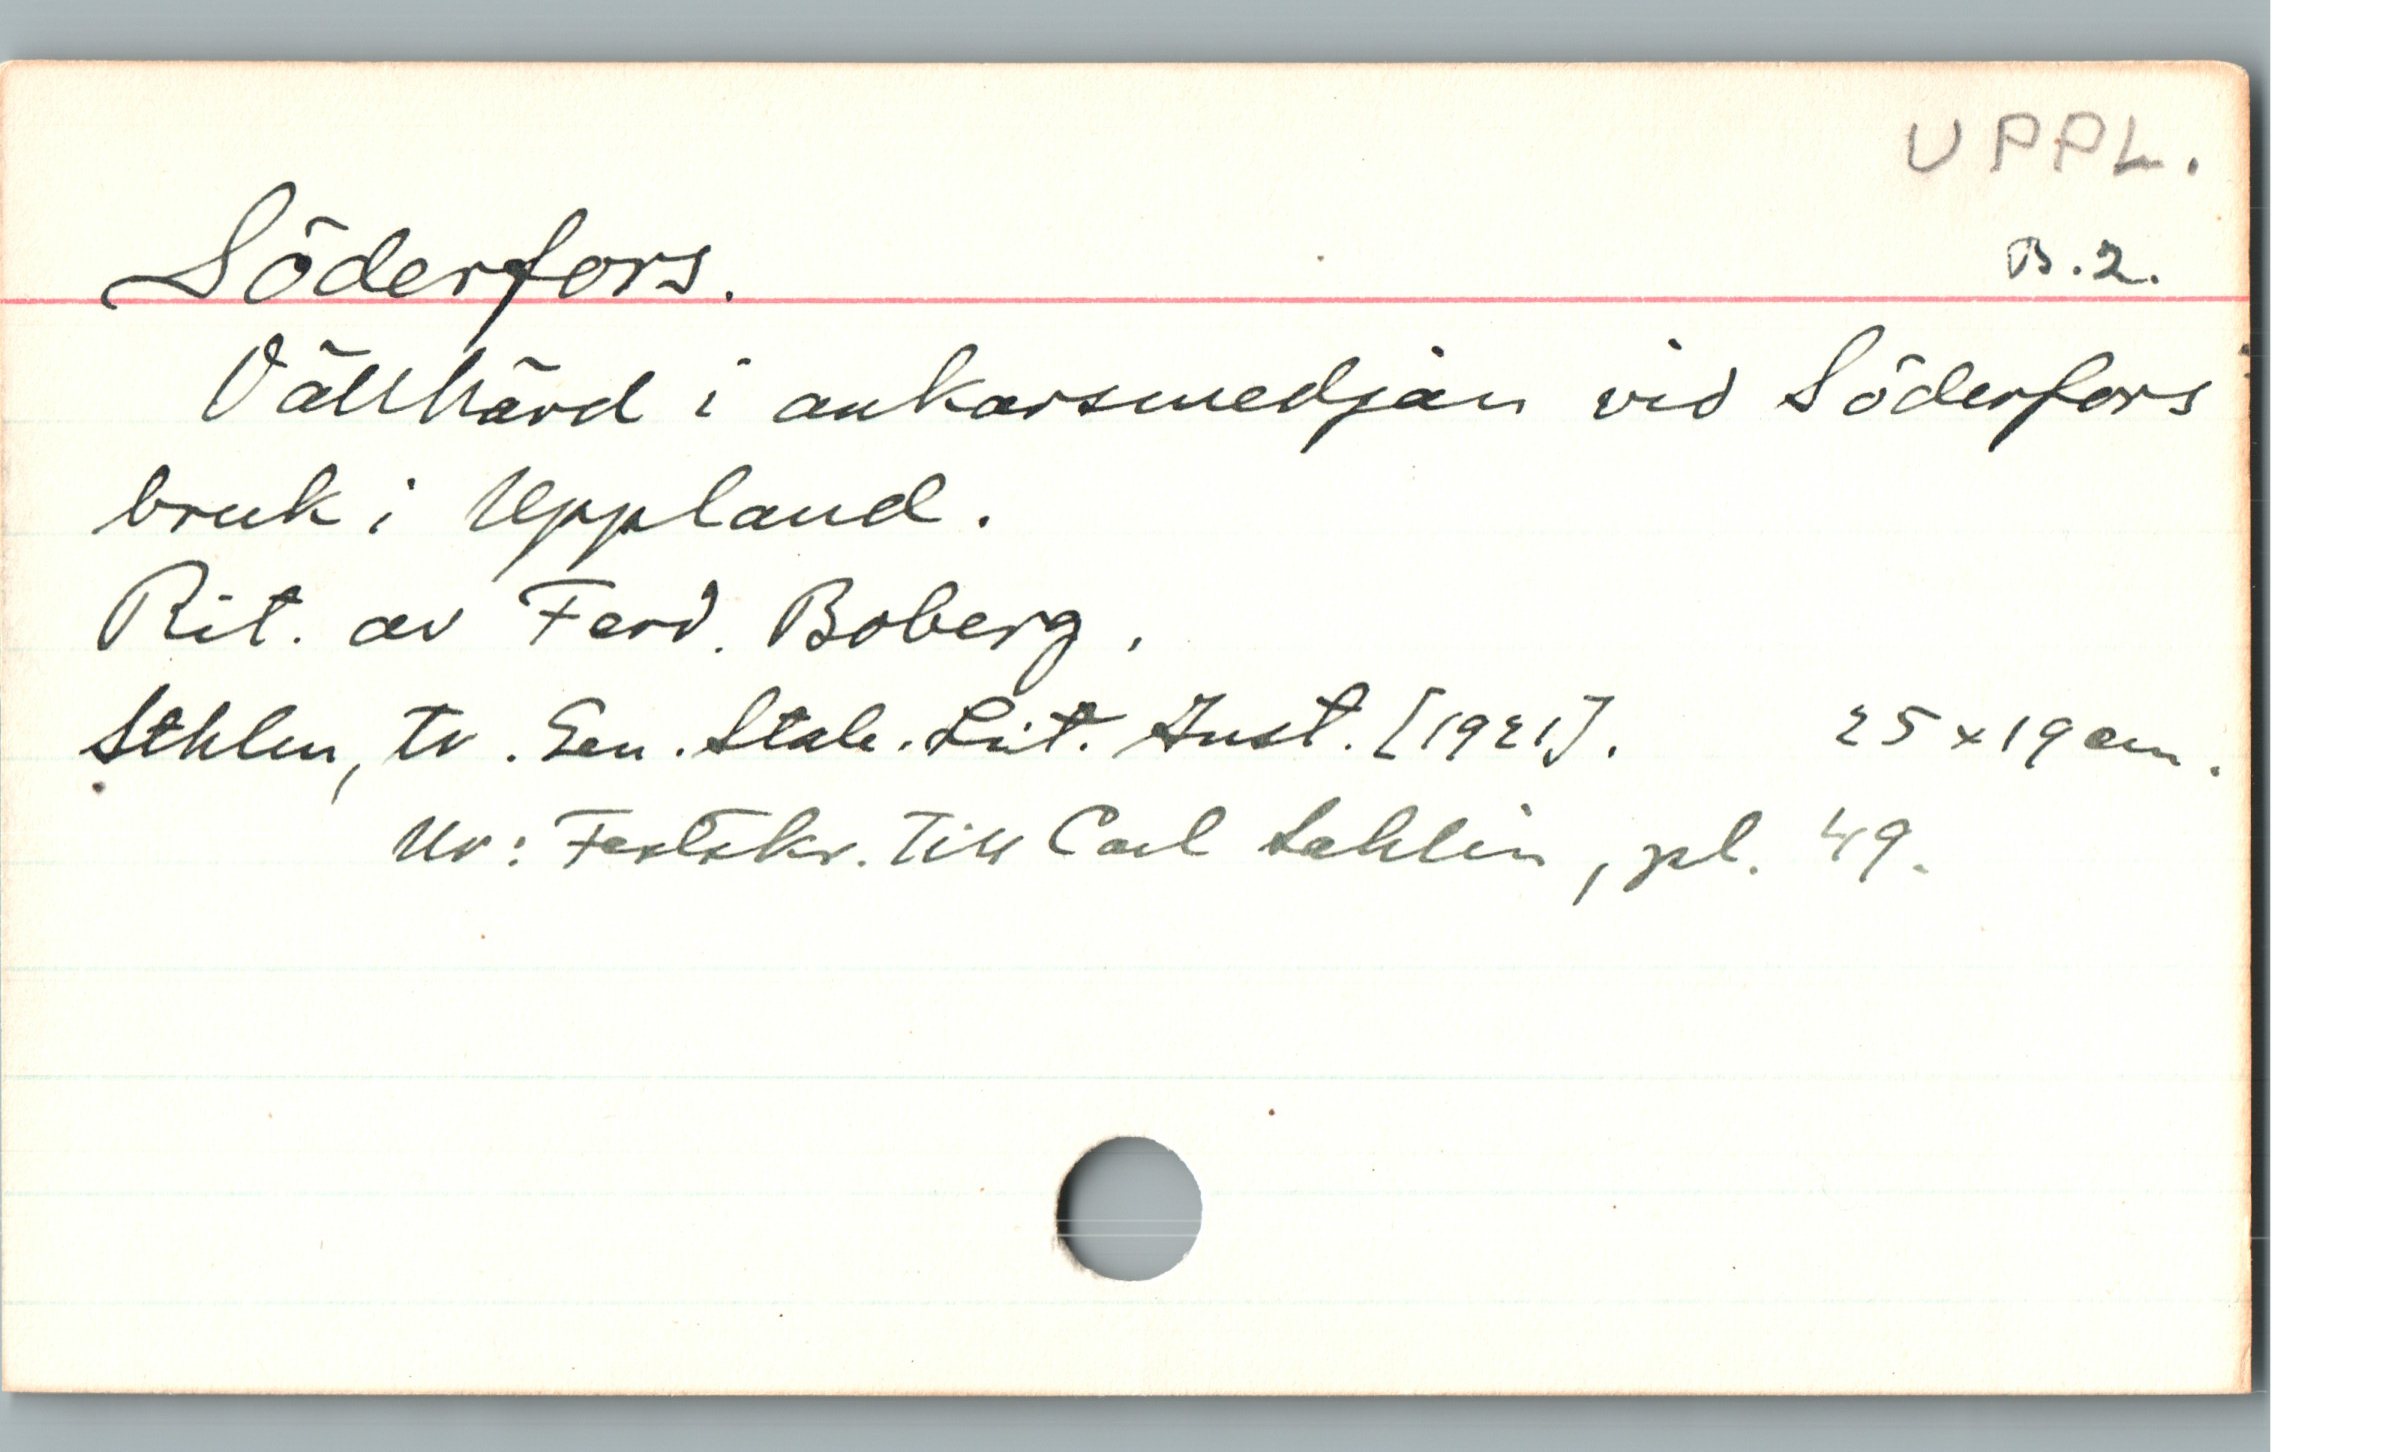 UPPL.
Söderfors. B.2.
Vällhärd i ankarsmedjan vid Söderfors
bruk i Uppland.
Rit. av Ferd. Boberg.
Sthlm, tr. Gen. Stab. Lit. Inst. [1921]. 25 x 19 cm.
Ur: Festskr. till Carl Sahlin, pl. 49.